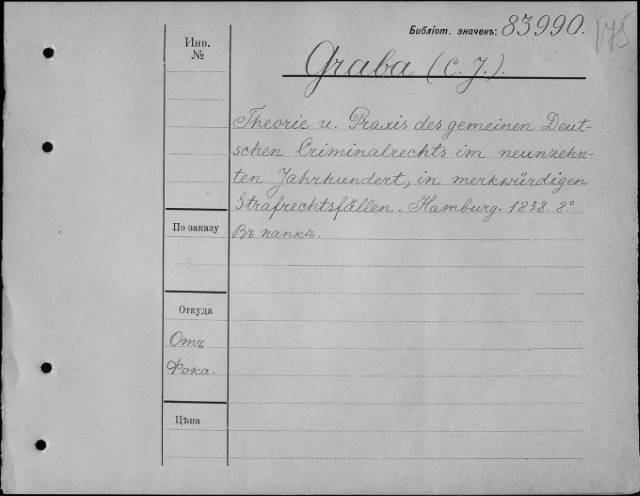 Библіот. значекъ: 83990.
175
Инв.
№
Graba (C. J.).
Theorie u. Praxis des gemeinen Deut-
schen Criminalrechts im neunzehn-
ten Jahrhundert, in merkwürdigen
Strafrechtsfällen. Hamburg. 1838. 8.º
По заказу
Въ папкѣ.
Откуда
Отъ
Фока.
Цѣна